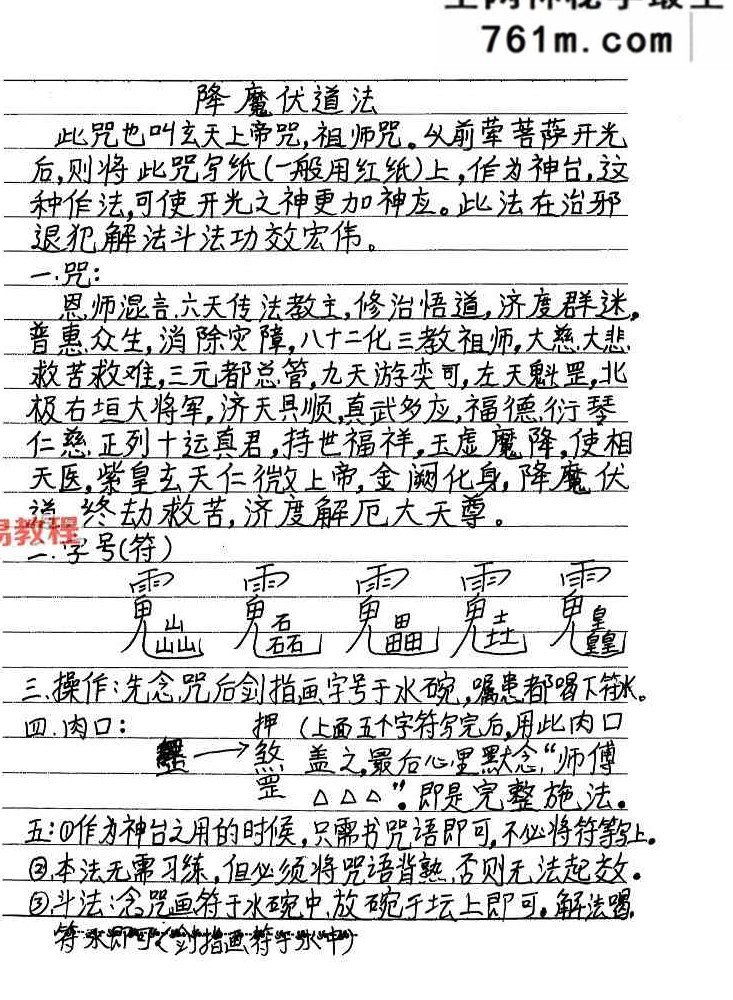 761m.com
降魔伏道法
此咒也叫玄天上帝咒,祖师咒。从前荤菩萨开光
后,则将此咒写纸(一般用红纸)上,作为神台,这
种作法,可使开光之神更加神应。此法在治邪
退犯解法斗法功效宏伟。
一.咒:
恩师混言,六天传法教主,修治悟道,济度群迷,
普惠众生,消除灾障,八十二化三教祖师,大慈大悲
救苦救难,三元都总管,九天游奕可,左天魁罡,北
极右垣大将军,济天具顺,真武多应,福德衍琴
仁慈正列十运真君,持世福祥,玉虚魔降,使相
天医,紫皇玄天仁微上帝,金阙化身,降魔伏
道,终劫救苦,济度解厄大天尊。
易教程
二.字号(符)
三.操作:先念咒后剑指画字号于水碗,嘱患者喝下符水。
四.肉口:
押
煞
罡
(上面五个字符写完后,用此肉口
盖之,最后心里默念“师傅
△△△”。即是完整施法。
五:①作为神台之用的时候,只需书咒语即可,不必将符等写上。
②本法无需习练,但必须将咒语背熟,否则无法起效。
③斗法:念咒画符于水碗中,放碗于坛上即可。解法喝
符水即可(剑指画符于水中)